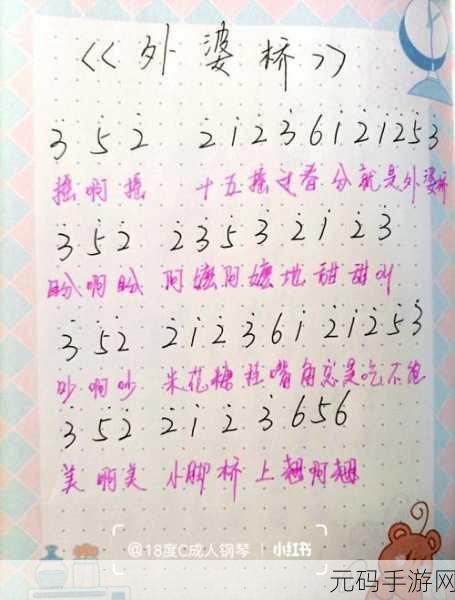 《外婆桥》
3 5 2 2 1 2 3 6 1 2 1 2 5 3
摇啊摇 十五摇过春分就是外婆桥
3 5 2 2 3 5 3 2 1 2 3
盼啊盼 阿嬷阿嬷地甜甜叫
3 5 2 2 1 2 3 6 1 2 1 2 5 3
吵啊吵 米花糖粘嘴角总是吃不饱
3 5 2 2 1 2 3 6 5 6
美啊美 小脚桥上翘啊翘
@18度C成人钢琴 | 小红书
元码手游网